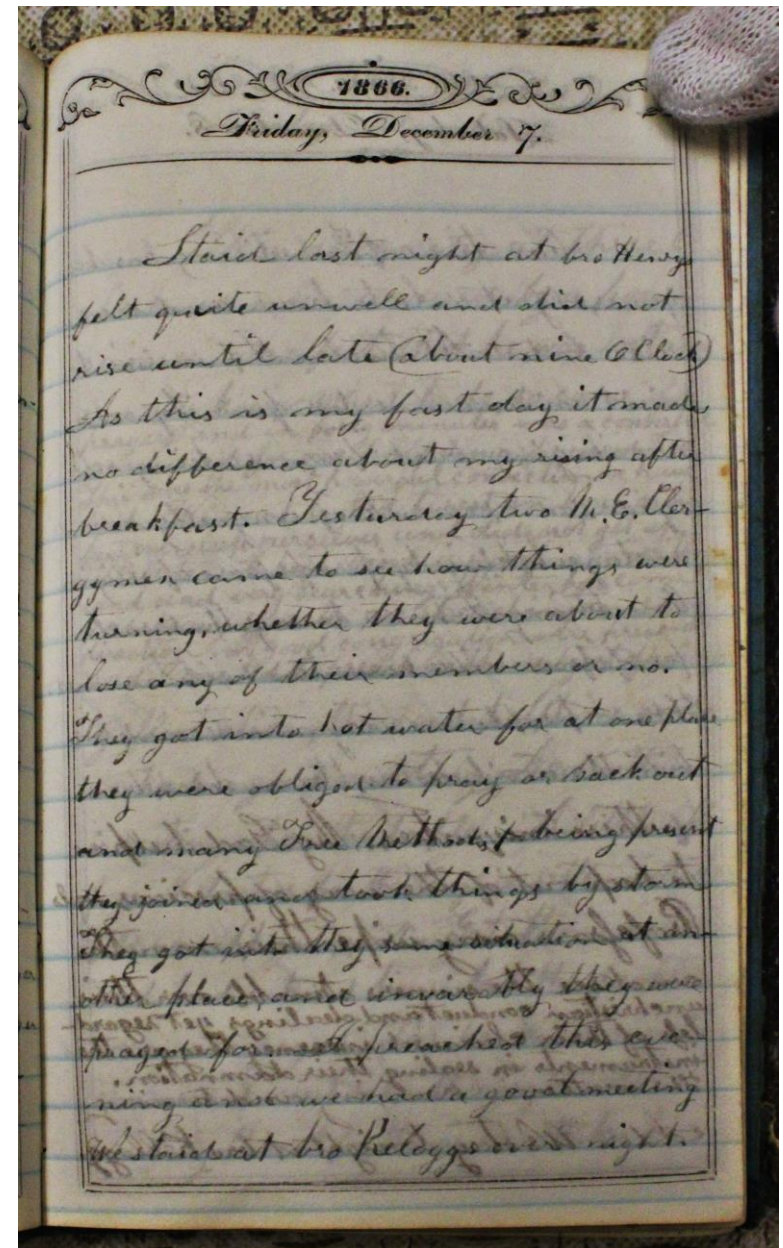 1866.
Friday, December 7.
Staid last night at bro Henrys
felt quite unwell and did not
rise until late (about nine OClock)
As this is my fast day it made
no difference about my rising after
breakfast. Yesturday two M.E. Cler-
gymen came to see how things were
turning, whether they were about to
lose any of their members or no.
They got into hot water for at one place
they were obliged to pray or back out
and many Free Methodists being present
they joined and took things by storm
They got into they same situation at an-
other place, and invariably they were
prayed for. I preached this eve-
ning and we had a good meeting
We staid at bro Kelloggs over night.